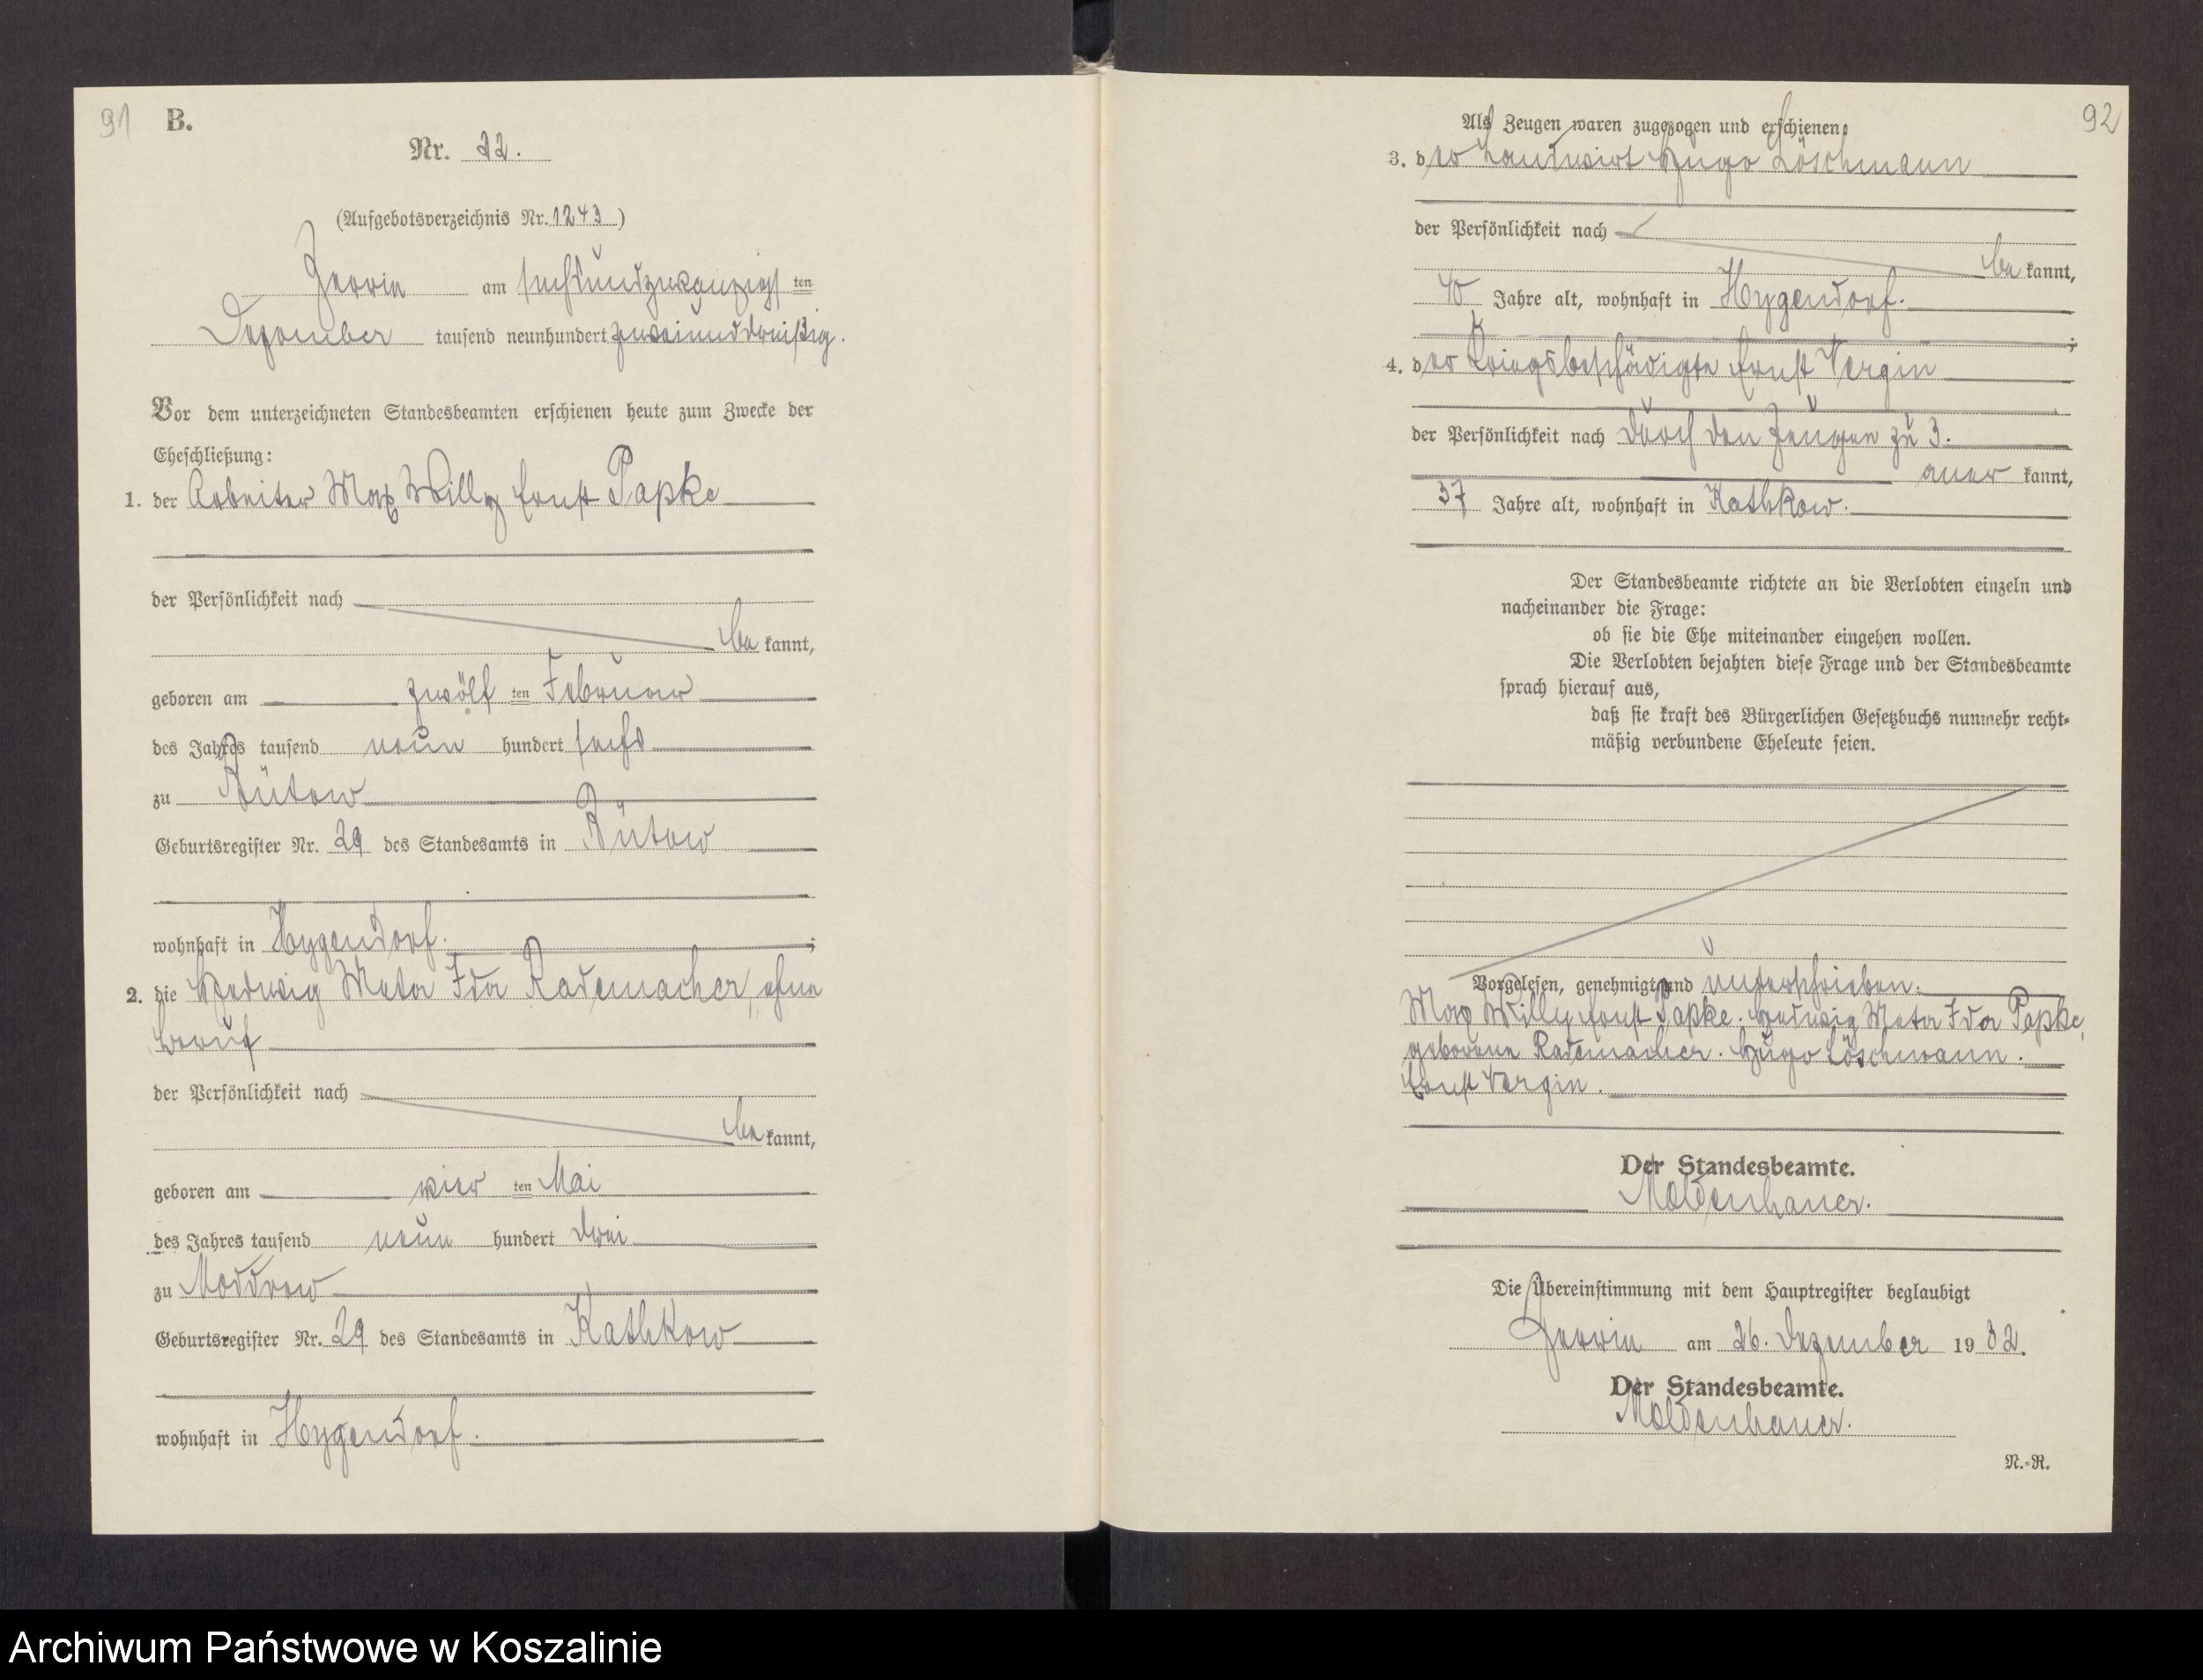 91
B.
Nr. 22.
(Aufgebotsverzeichnis Nr. 1243)
Zerrin am sechsundzwanzigsten
Dezember tausend neunhundert zweiunddreißig.
Vor dem unterzeichneten Standesbeamten erschienen heute zum Zwecke der
Eheschließung:
1. der Arbeiter Max Willy Ernst Papke
der Persönlichkeit nach
be kannt,
geboren am zwölf ten Februar
des Jahres tausend neun hundert sechs
zu Bütow
Geburtsregister Nr. 29 des Standesamts in Bütow
wohnhaft in Hygendorf.;
2. die Hedwig Meta Ida Rademacher, ohne
Beruf
der Persönlichkeit nach
be kannt,
geboren am vier ten Mai
des Jahres tausend neun hundert drei
zu Moddrow
Geburtsregister Nr. 29 des Standesamts in Kathkow
wohnhaft in Hygendorf.
92
Als Zeugen waren zugezogen und erschienen:
3. der Landwirt Hugo Löschmann
der Persönlichkeit nach
be kannt,
40 Jahre alt, wohnhaft in Hygendorf.
;
4. der Kriegsbeschädigte Ernst Vergin
der Persönlichkeit nach durch den Zeugen zu 3.
aner kannt,
37 Jahre alt, wohnhaft in Kathkow.
Der Standesbeamte richtete an die Verlobten einzeln und
nacheinander die Frage:
ob sie die Ehe miteinander eingehen wollen.
Die Verlobten bejahten diese Frage und der Standesbeamte
sprach hierauf aus,
daß sie kraft des Bürgerlichen Gesetzbuchs nunmehr recht-
mäßig verbundene Eheleute seien.
Vorgelesen, genehmigt und unterschrieben.
Max Willy Ernst Papke. Hedwig Meta Ida Papke,
geborene Rademacher. Hugo Löschmann.
Ernst Vergin.
Der Standesbeamte.
Moldenhauer.
Die Übereinstimmung mit dem Hauptregister beglaubigt
Zerrin am 26. Dezember 1932.
Der Standesbeamte.
Moldenhauer.
N.-R.
Archiwum Państwowe w Koszalinie